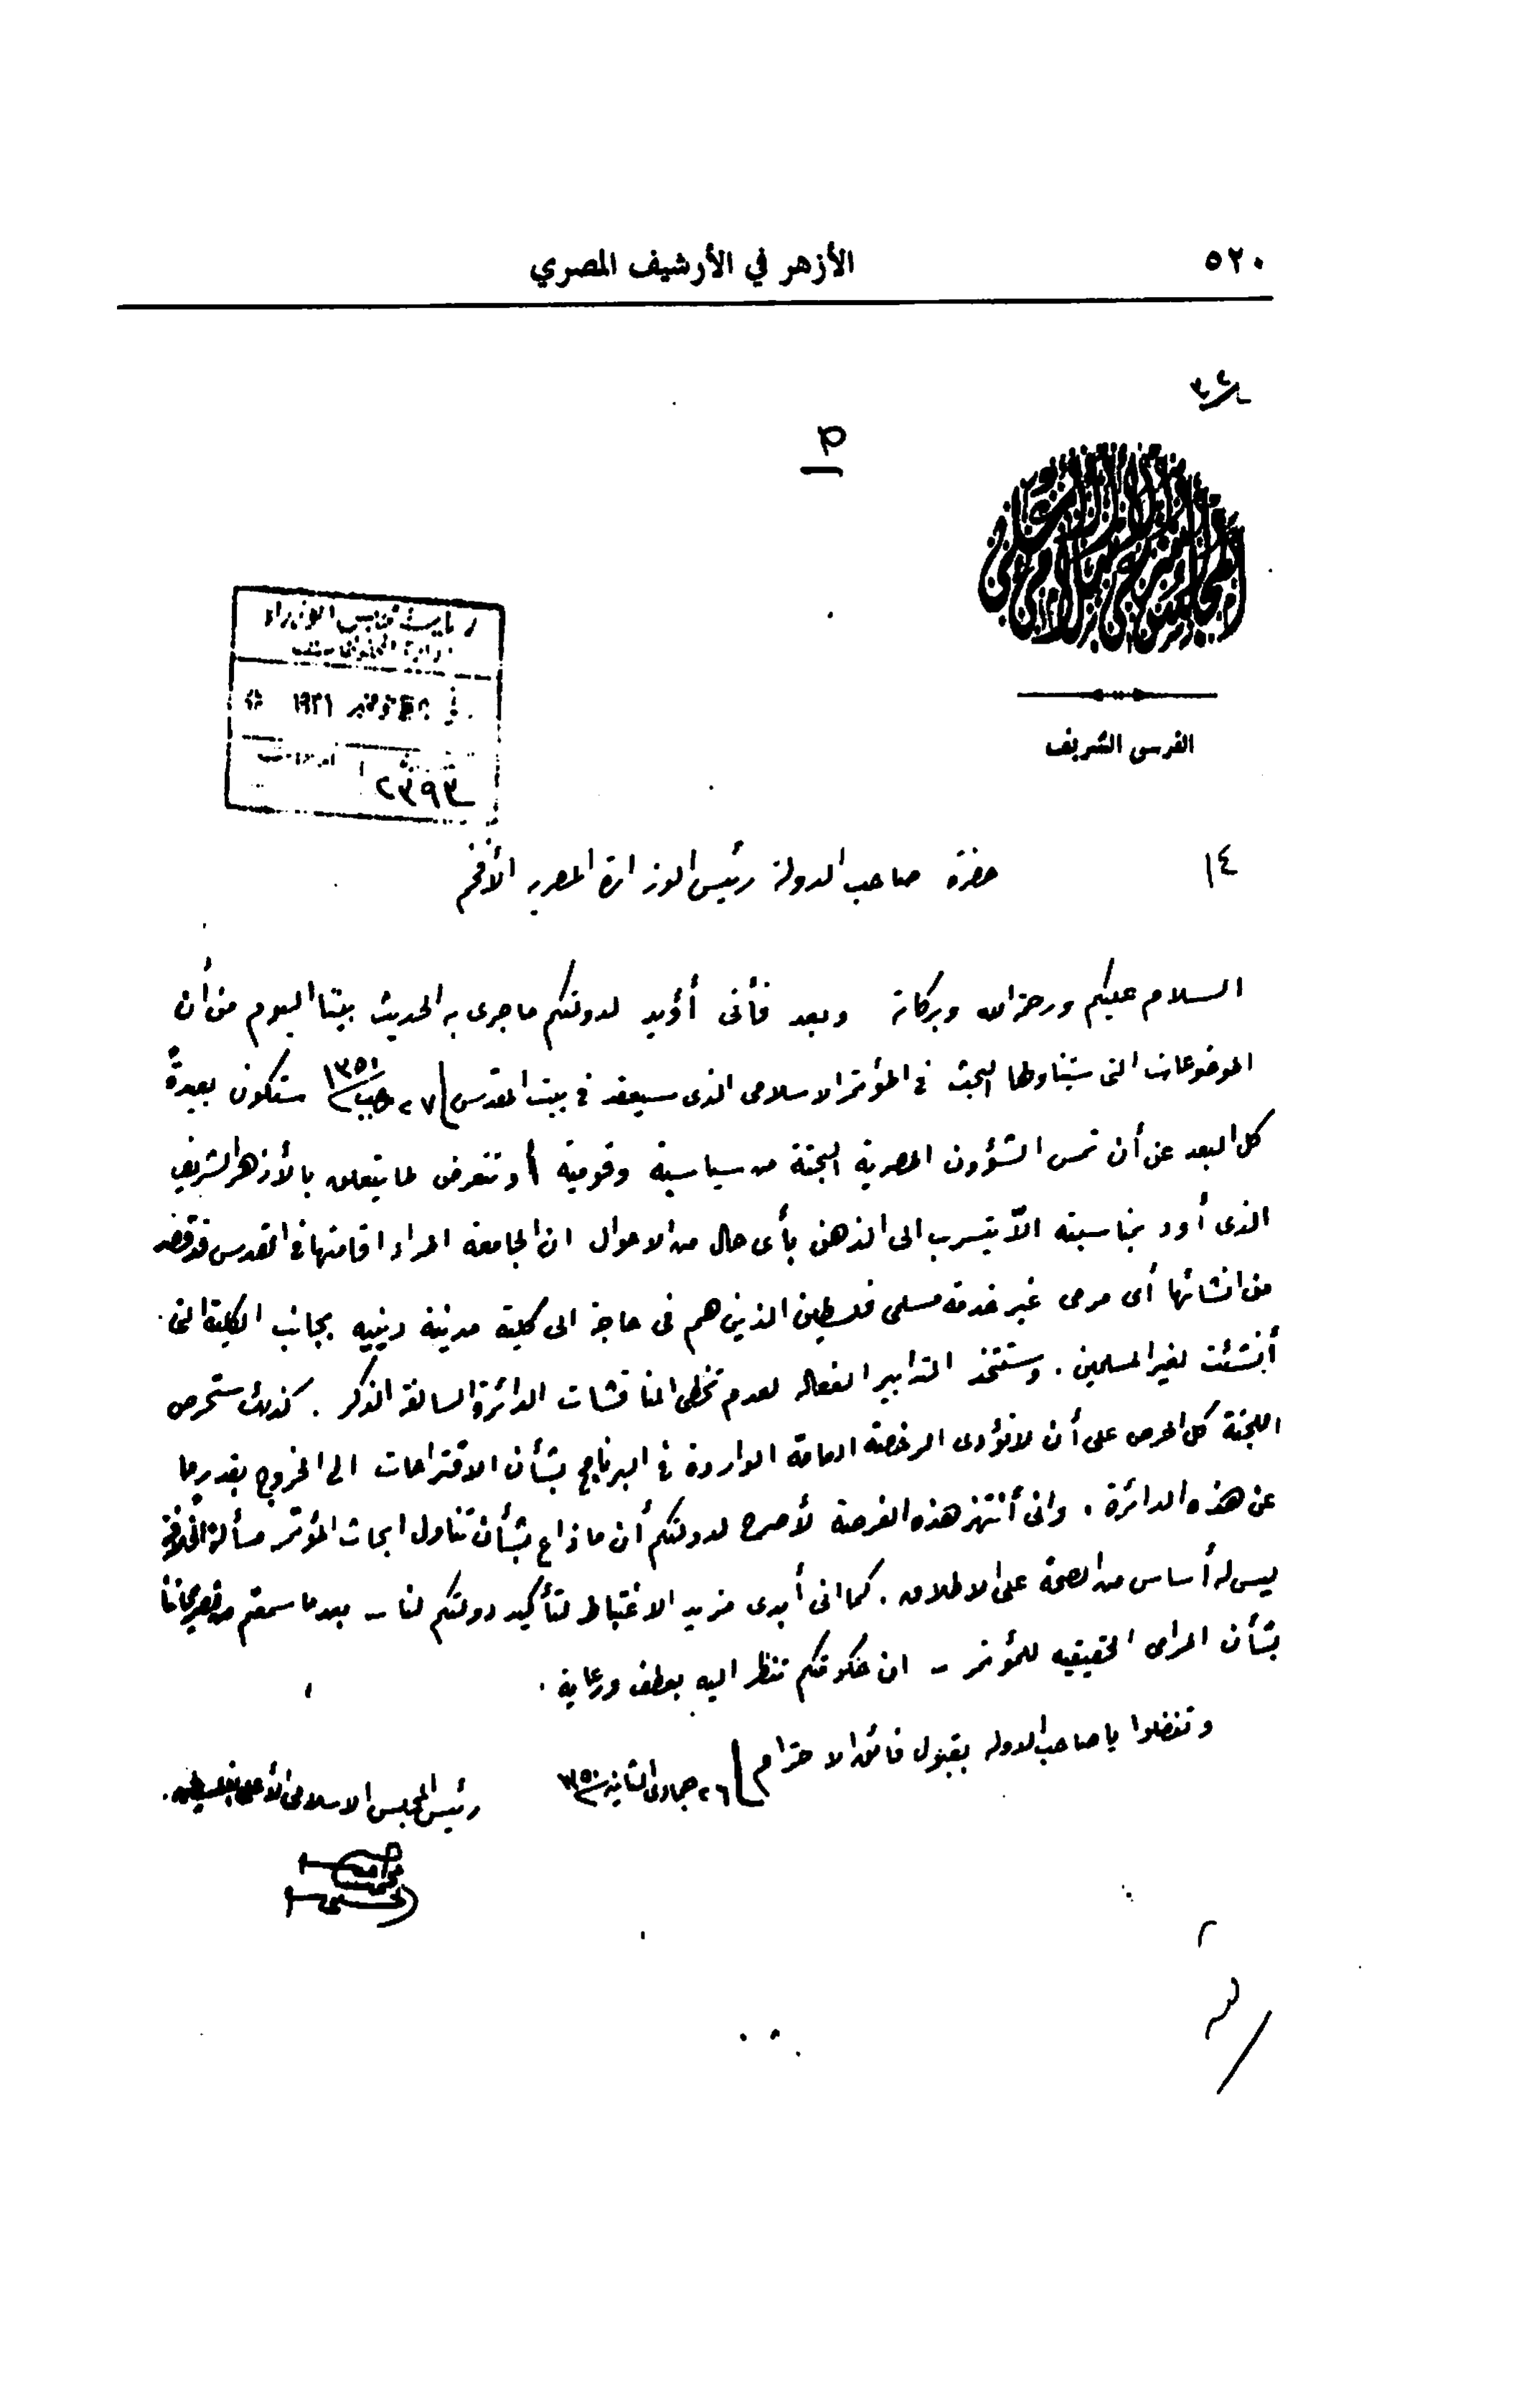 ٥٢٠ الأزهر في الأرشيف المصري
القدس الشريف
رياسة مجلس الوزراء
في نوفمبر ١٩٣١
٢٣٩٣
١٤
حضرة صاحب الدولة رئيس الوزارة المصرية الأفخم
السلام عليكم ورحمة الله وبركاته وبعد فأنى أؤيد لدولتكم ما جرى به الحديث بيننا اليوم من أن
الموضوعات التى سيتناولها البحث فى المؤتمر الاسلامى الذى سيعقد فى بيت المقدس ٢٧ رجب ستكون بعيدةً
كل البعد عن أن تمس الشؤون المصرية البحتة من سياسية وقومية أو تتعرض لما يتعلق بالأزهر الشريف
الذى أود بمناسبته الاّ يتسرب الى الذهن بأى حال من الاحوال ان الجامعة المراد اقامتها فى القدس قد قصد
من انشائها أى مرمى غير خدمة مسلمى فلسطين الذين هم فى حاجة الى كلية مدنية دينيه بجانب الكلية التى
أنشئت لغير المسلمين . وستتخذ التدابير الفعاله لعدم تخطى المناقشات الدائرة السالفة الذكر . كذلك ستحرص
اللجنة كل الحرص على أن لا تؤدى الرخصة العامة الواردة فى البرنامج بشأن الاقتراحات الى الخروج بقدر ما
عن هذه الدائرة . وانى أنتهز هذه الفرصة لأصرح لدولتكم أن ما ذاع بشأن تناول ابحاث المؤتمر مسألة الخلافة
ليس له أساس من الصحة على الاطلاق . كما انى أبدى مزيد الاغتباط لتأكيد دولتكم لنا – بعد ما سمعتم من تصريحاتنا
بشأن المرامى الحقيقيه للمؤتمر – ان حكومتكم تنظر اليه بعطف ورعاية .
وتفضلوا يا صاحب الدوله بقبول فائق الاحترام ٢٦ جمادى الثانية ١٣٥٠
رئيس المجلس الاسلامى الأعلى بفلسطين .
محمد أمين
الحسينى